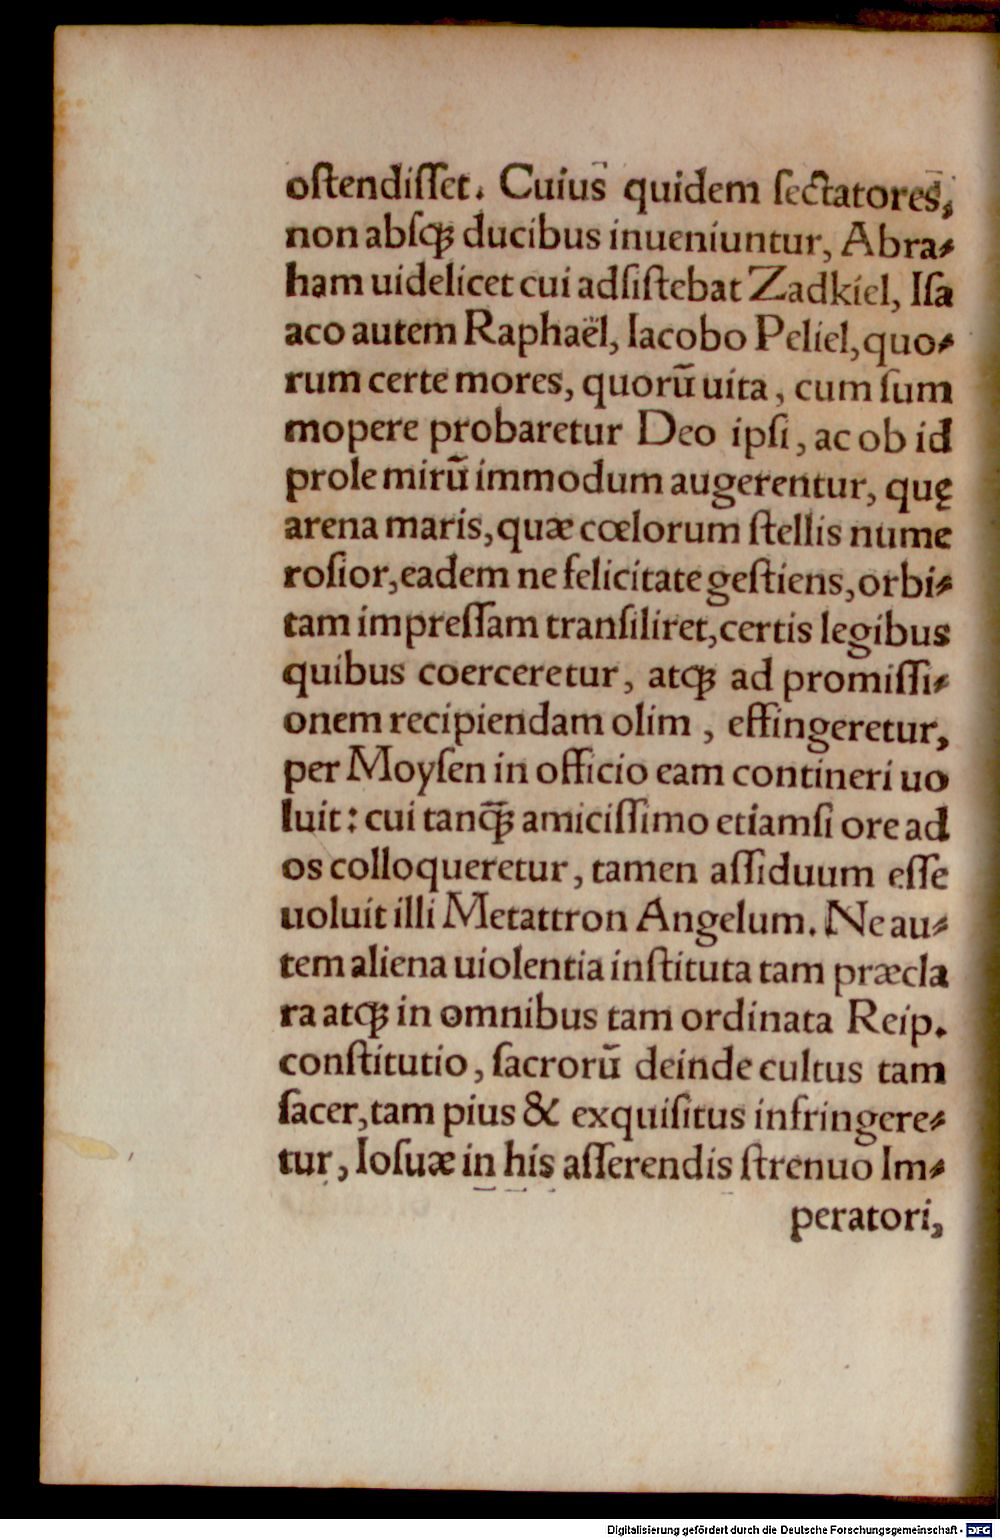 oſtendiſſet. Cuius quidem ſectatores,
non abſqꝫ ducibus inueniuntur, Abra⸗
ham uidelicet cui adſiſtebat Zadkiel, Iſa
aco autem Raphaël, Iacobo Peliel, quo⸗
rum certe mores, quorũ uita, cum ſum
mopere probaretur Deo ipſi, ac ob id
prole mirũ immodum augerentur, quę
arena maris, quæ cœlorum ſtellis nume
roſior, eadem ne felicitate geſtiens, orbi⸗
tam impreſſam tranſiliret, certis legibus
quibus coerceretur, atqꝫ ad promiſſi⸗
onem recipiendam olim, effingeretur,
per Moyſen in officio eam contineri uo
luit: cui tanq̃ꝫ amiciſſimo etiamſi ore ad
os colloqueretur, tamen aſſiduum eſſe
uoluit illi Metattron Angelum. Ne au⸗
tem aliena uiolentia inſtituta tam præcla
ra atqꝫ in omnibus tam ordinata Reip.
conſtitutio, ſacrorũ deinde cultus tam
ſacer, tam pius & exquiſitus infringere⸗
tur, Ioſuæ in his aſſerendis ſtrenuo Im⸗
peratori,
Digitalisierung gefördert durch die Deutsche Forschungsgemeinschaft - DFG